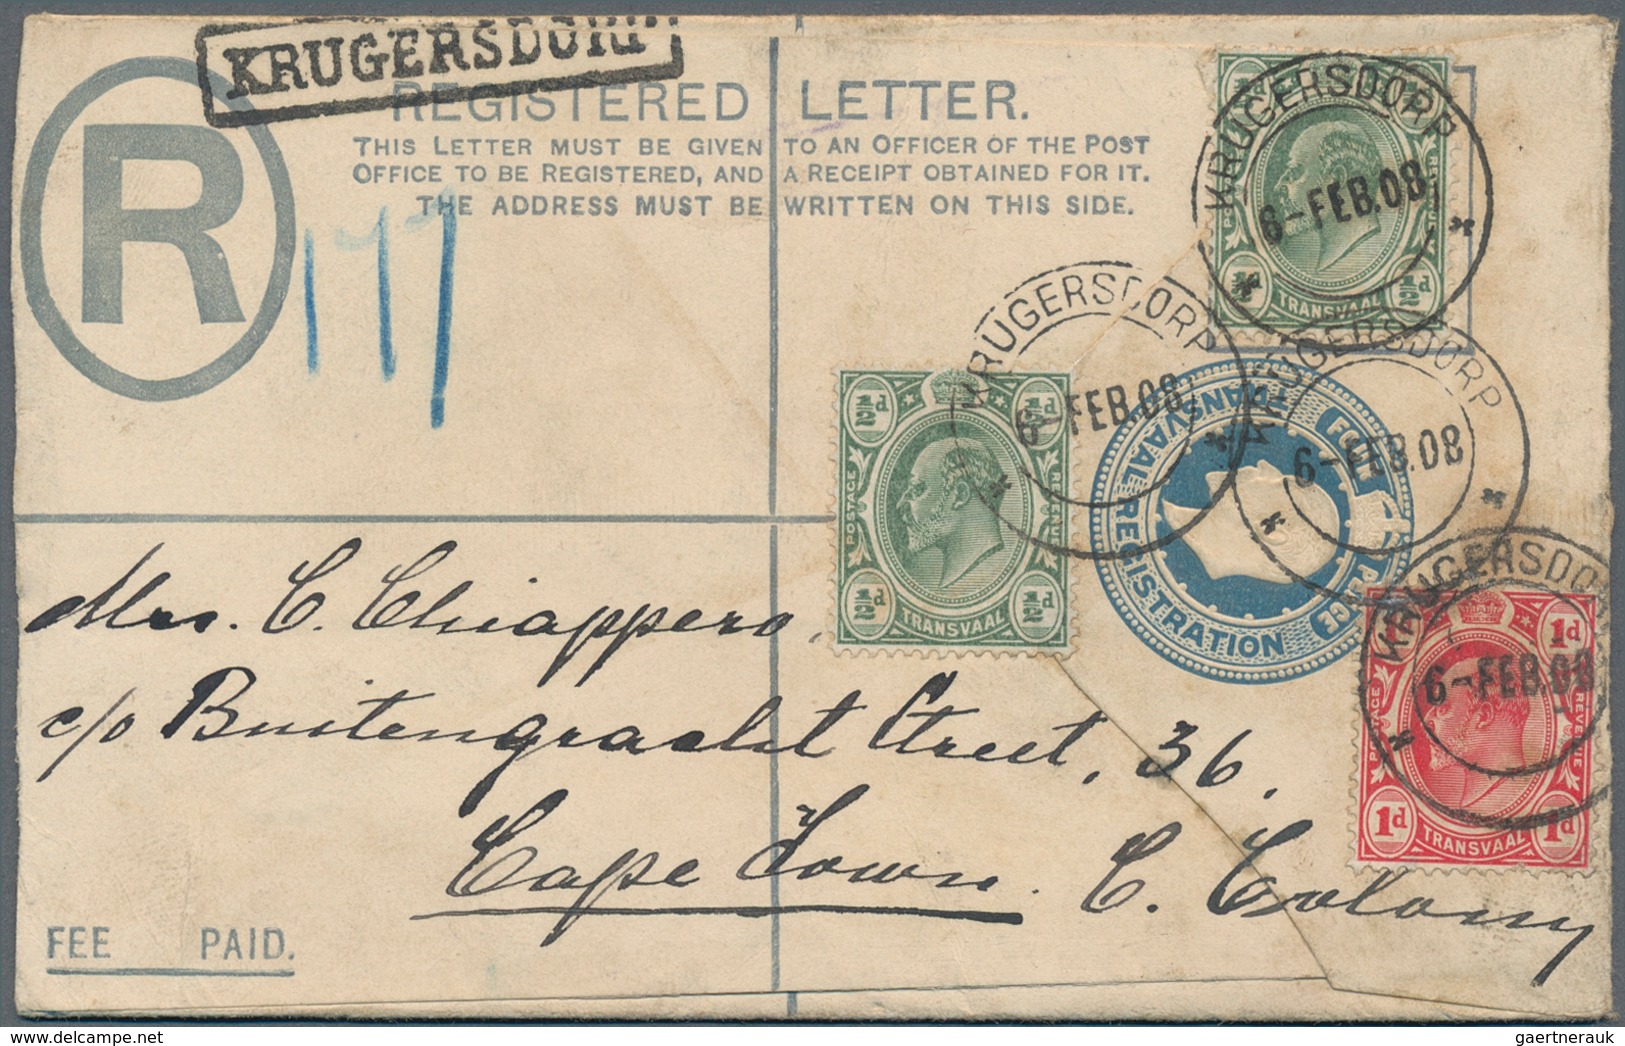 KRUGERSDORP
R
REGISTERED LETTER.
THIS LETTER MUST BE GIVEN TO AN OFFICER OF THE POST
OFFICE TO BE REGISTERED, AND A RECEIPT OBTAINED FOR IT.
THE ADDRESS MUST BE WRITTEN ON THIS SIDE.
177
KRUGERSDORP
6-FEB.08
½d ½d
POSTAGE REVENUE
½ TRANSVAAL ½d
KRUGERSDORP
6-FEB.08
½d ½d
POSTAGE REVENUE
½d TRANSVAAL ½d
KRUGERSDORP
6-FEB.08
TRANSVAAL REGISTRATION
FOUR PENCE
KRUGERSDORP
6-FEB.08
1d
POSTAGE REVENUE
1d TRANSVAAL 1d
Mrs. C. Chiappero,
c/o Buitengracht Street, 36.
Cape Town. C. Colony
FEE PAID.
delcampe.net
gaertnerauk